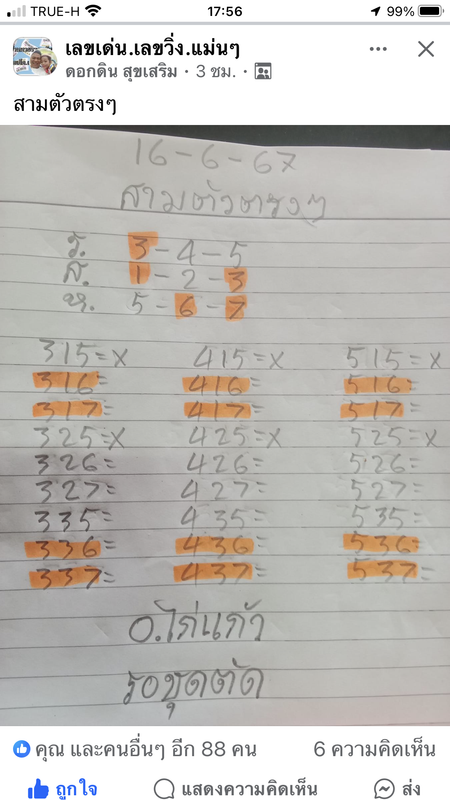 TRUE-H 17:56 99%
เลขเด่น.เลขวิ่ง.แม่นๆ
ดอกดิน สุขเสริม · 3 ชม. ·
สามตัวตรงๆ
16-6-67
สามตัวตรงๆ
ร. 3-4-5
ส. 1-2-3
ห. 5-6-7
315=x 415=x 515=x
316= 416= 516=
317= 417= 517=
325=x 425=x 525=x
326= 426= 526=
327= 427= 527=
335= 435= 535=
336= 436= 536=
337= 437= 537=
อ.ไก่แก้ว
รอชุดตัด
คุณ และคนอื่นๆ อีก 88 คน 6 ความคิดเห็น
ถูกใจ แสดงความคิดเห็น ส่ง